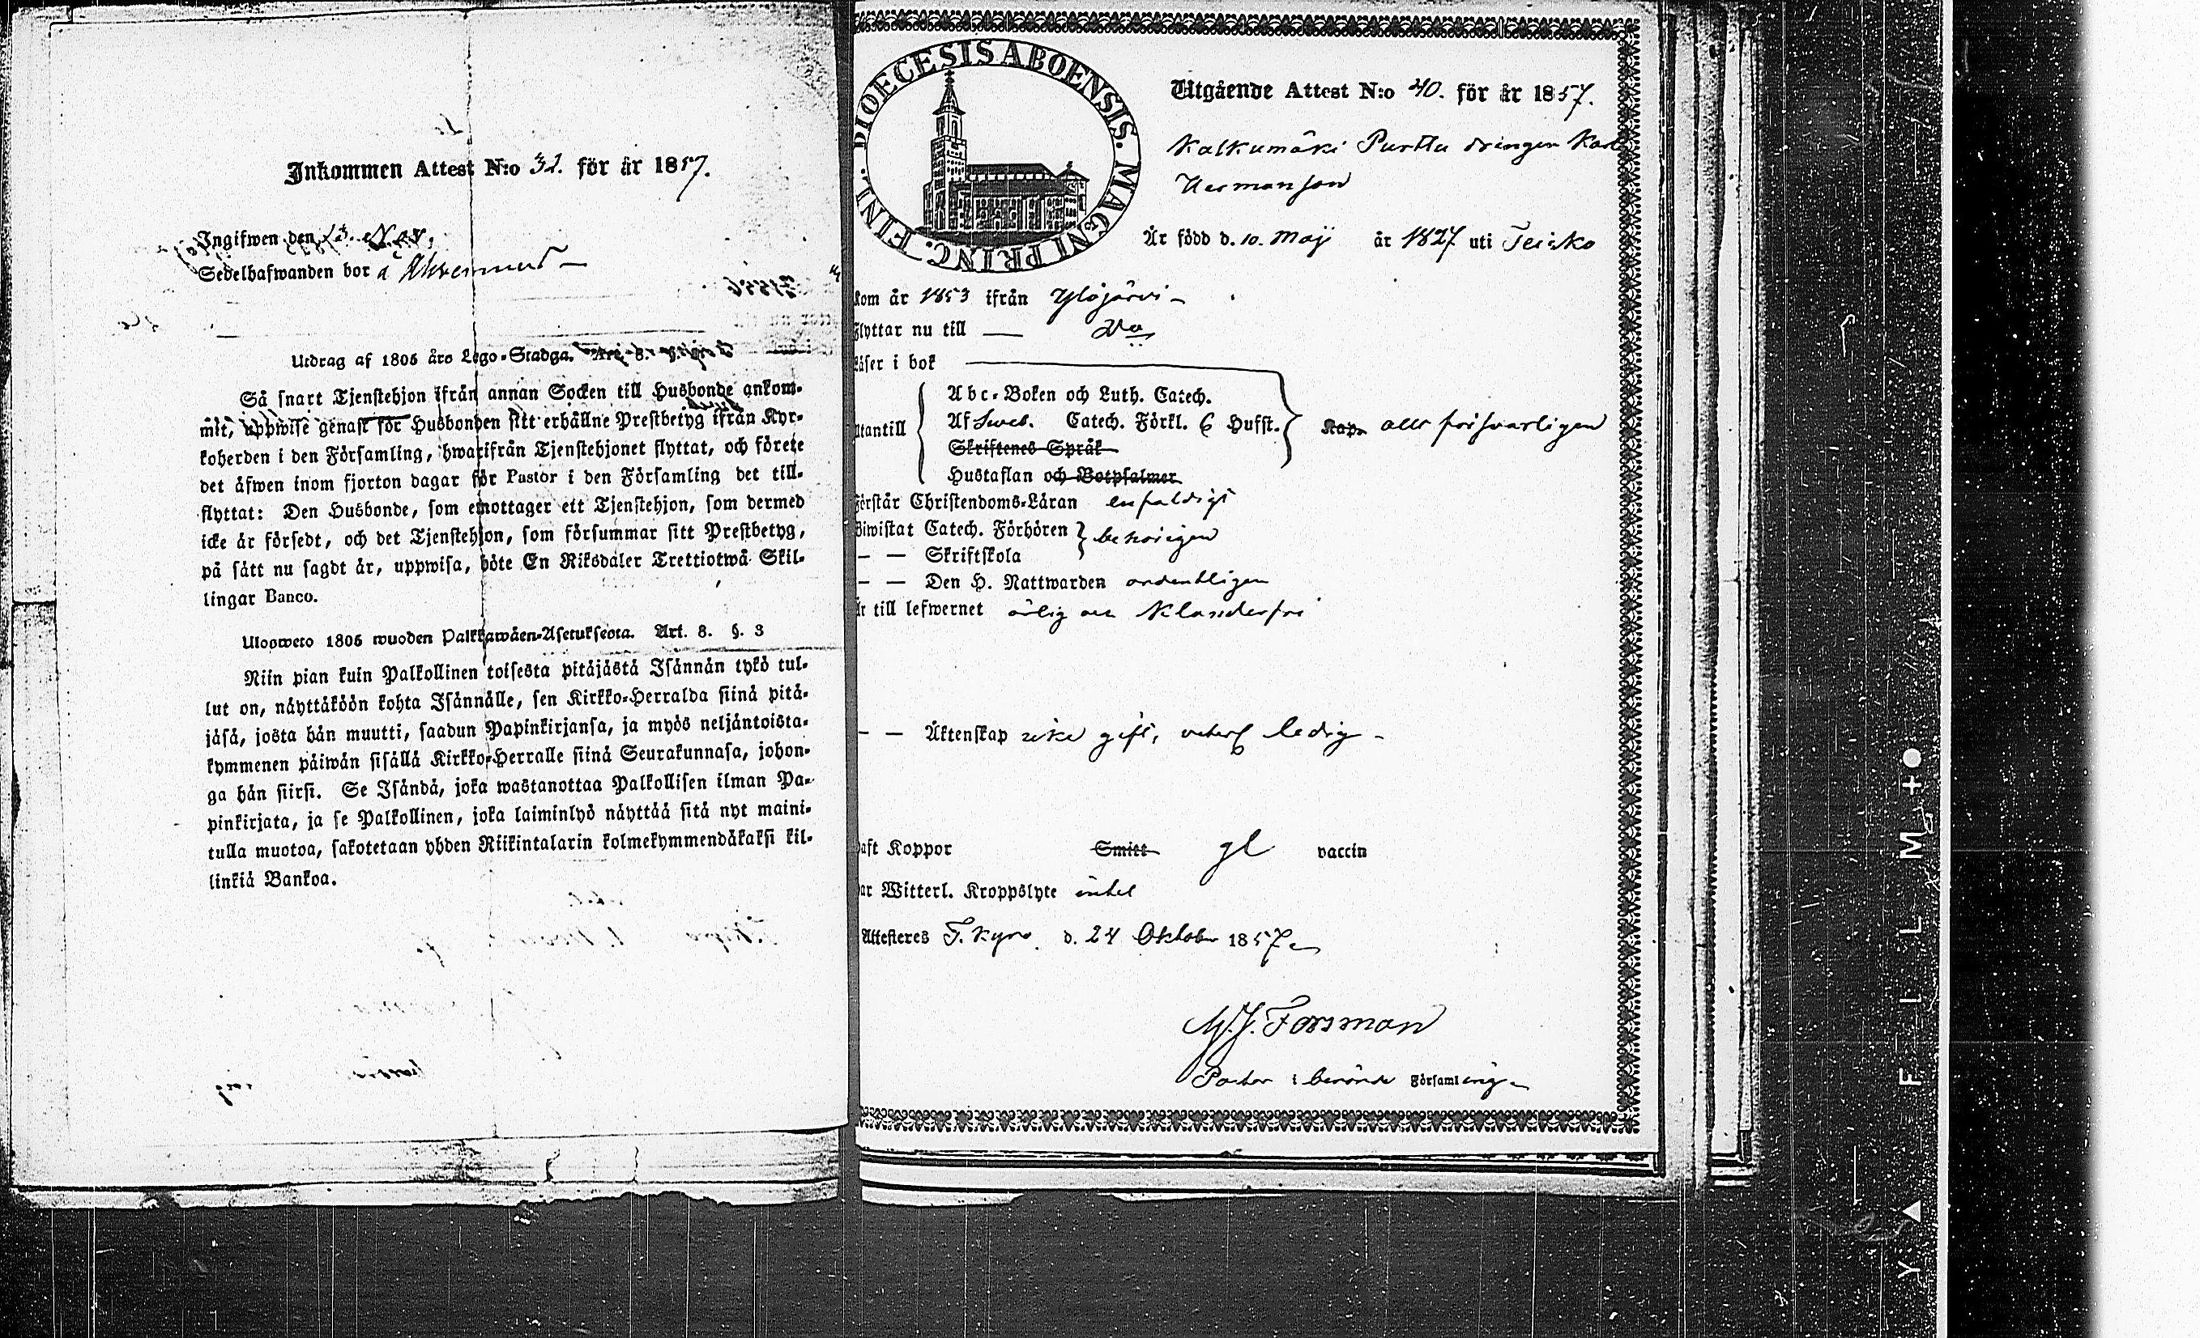 Inkommen Attest N:o 32. för år 1857.
Ingifwen den 13. Nov.
Sedelhafwanden bor å
Utdrag af 1805 års Lego-Stadga. Art. 8. §. 3
Så snart Tjenstehjon ifrån annan Socken till Husbonde ankom-
mit, uppwise genast för Husbonden sitt erhållne Prestbetyg ifrån Kyr-
koherden i den Församling, hwarifrån Tjenstehjonet flyttat, och förete
det äfwen inom fjorton dagar för Pastor i den Församling det till-
flyttat: Den Husbonde, som emottager ett Tjenstehjon, som dermed
icke är försedt, och det Tjenstehjon, som försummar sitt Prestbetyg,
på sätt nu sagdt är, uppwisa, böte En Riksdaler Trettiotwå Skil-
lingar Banco.
Ulosweto 1805 wuoden Palkkawäen-Asetuksesta. Art. 8. §. 3
Niin pian kuin Palkollinen toisesta pitäjästä Isännän tykö tul-
lut on, näyttäköön kohta Isännälle, sen Kirkko-Herralda siinä pitä-
jäsä, josta hän muutti, saadun Papinkirjansa, ja myös neljäntoista-
kymmenen päiwän sisällä Kirkko-Herralle siinä Seurakunnasa, johon-
ga hän siirsi. Se Isändä, joka wastanottaa Palkollisen ilman Pa-
pinkirjata, ja se Palkollinen, joka laiminlyö näyttää sitä nyt maini-
tulla muotoa, sakotetaan yhden Riikintalarin kolmekymmendäkaksi kil-
linkiä Bankoa.
DIOECESIS ABOENSIS. MAGNI PRINC. FINL.
Utgående Attest N:o 40. för år 1857.
Kalkumäki Purttu drängen Karl
Hermansson
Är född d. 10. Maji år 1827 uti Teisko
kom år 1853 ifrån Ylöjärvi
Flyttar nu till
Läser i bok
Abc-Boken och Luth. Catech.
Utantill Af Sweb. Catech. Förkl. & Hufst. Kap. allt försvarligen
Skriftenes Språk
Hustaflan och Botpsalmer
Förstår Christendoms-Läran enfaldigt
Biwistat Catech. Förhören behörigen
— — Skriftskola
— — Den H. Nattwarden ordentligen
Är till lefwernet ärlig och klanderfri
— — Äktenskap icke gift, utan ledig
Haft Koppor Smitt gl vaccin
Har Witterl. Kroppslyte intet
Attesteres T. Kyro d. 24 Oktober 1857
M. J. Forsman
Pastor i berörde Församling
SAFETY FILM